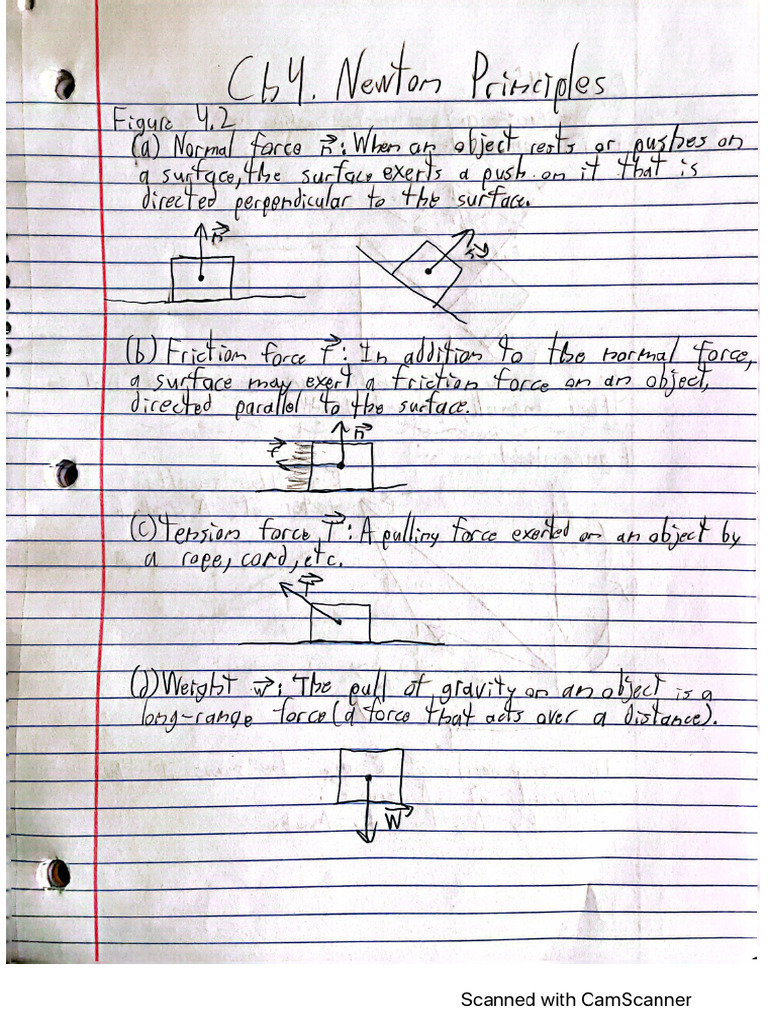 Ch 4. Newton Principles
Figure 4.2
(a) Normal force n⃗: When an object rests or pushes on
a surface, the surface exerts a push on it that is
directed perpendicular to the surface.
n⃗
n⃗
(b) Friction force f⃗: In addition to the normal force,
a surface may exert a friction force on an object,
directed parallel to the surface.
n⃗
f⃗
(c) Tension force T⃗: A pulling force exerted on an object by
a rope, cord, etc.
T⃗
(d) Weight w⃗: The pull of gravity on an object is a
long-range force (a force that acts over a distance).
w⃗
Scanned with CamScanner